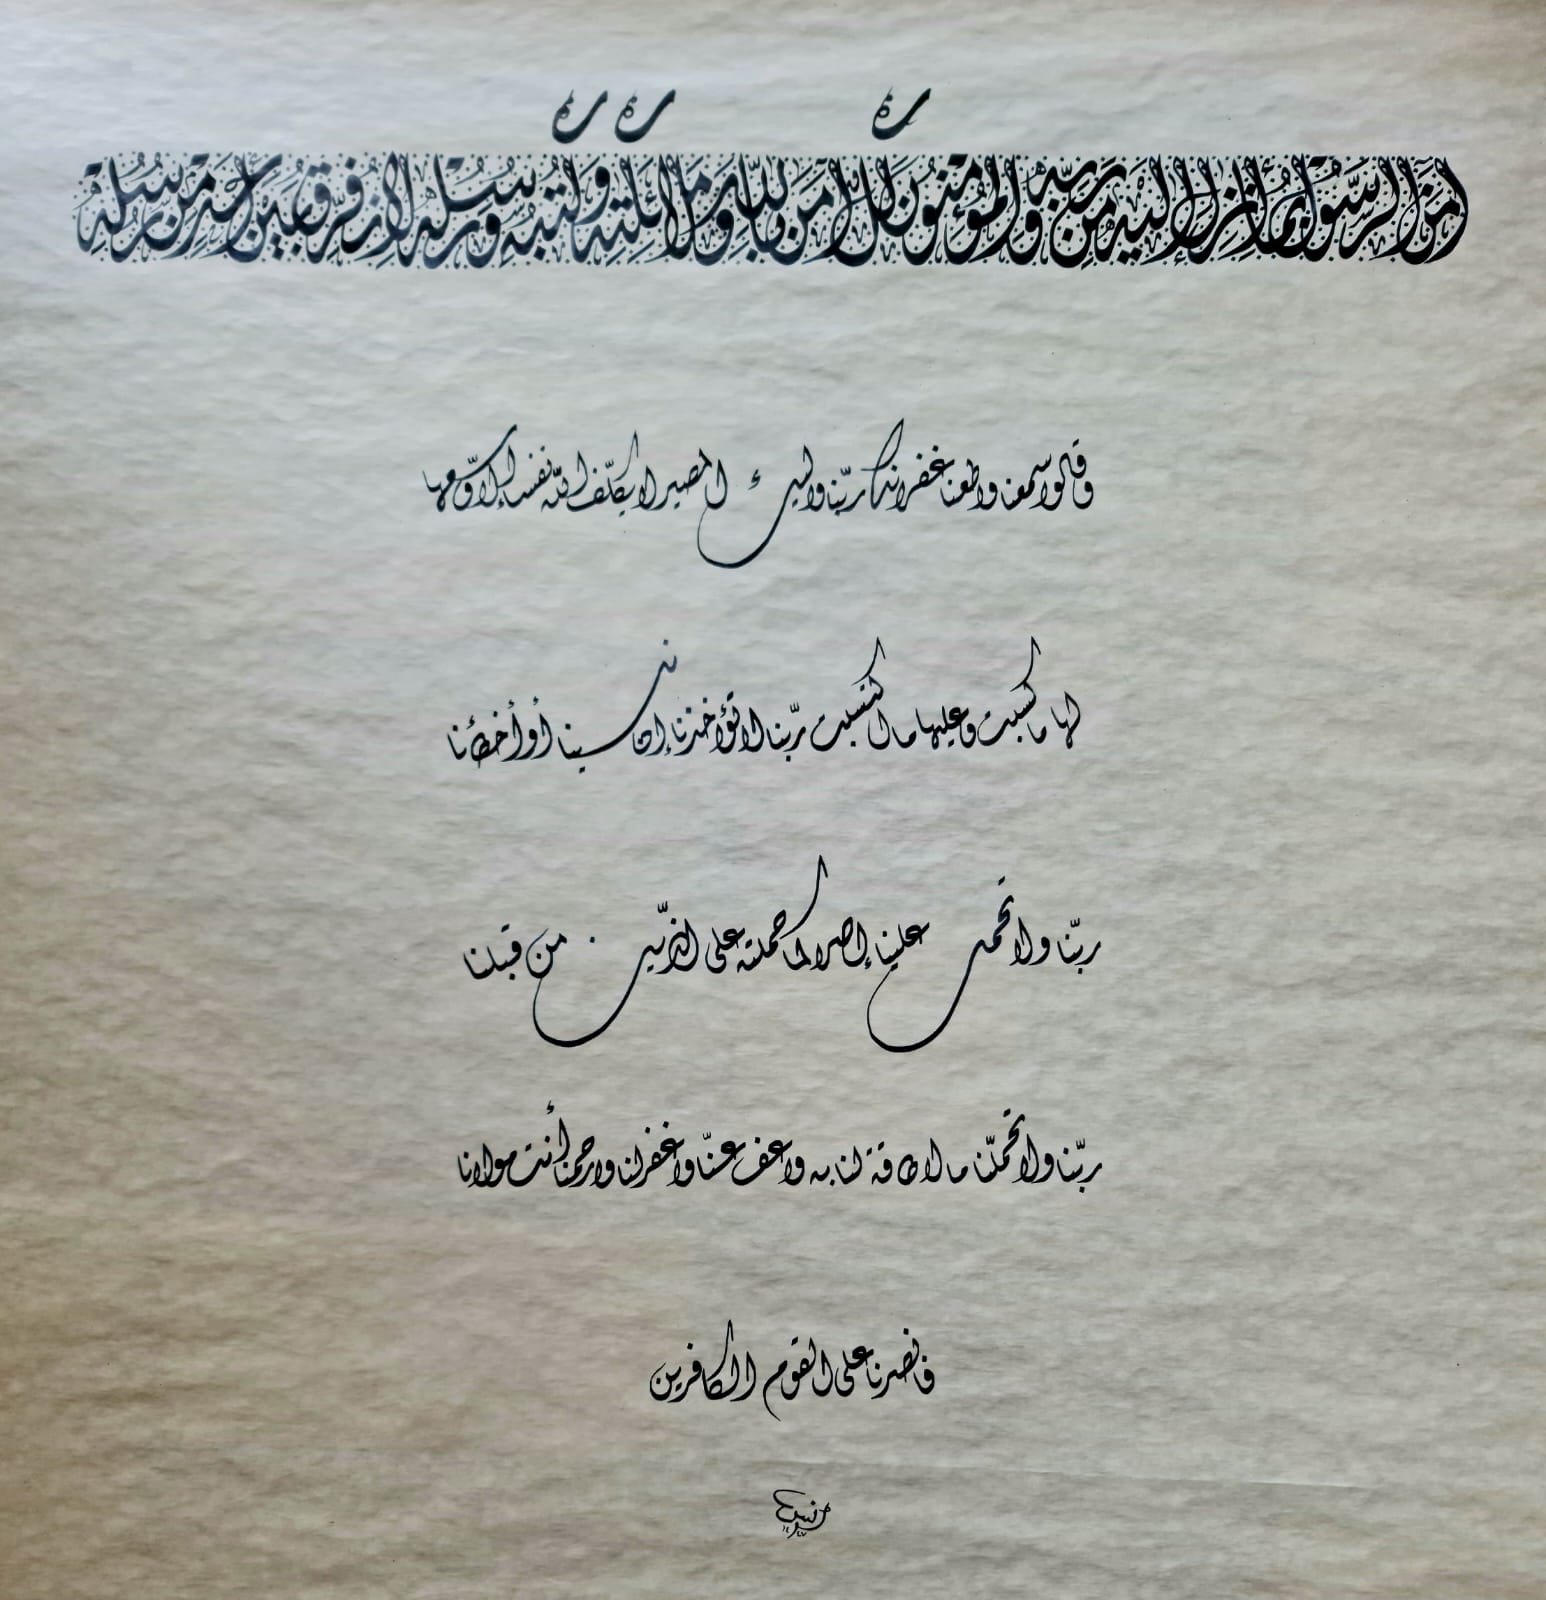 آمَنَ الرَّسُولُ بِمَا أُنْزِلَ إِلَيْهِ مِنْ رَبِّهِ وَالْمُؤْمِنُونَ كُلٌّ آمَنَ بِاللَّهِ وَمَلَائِكَتِهِ وَكُتُبِهِ وَرُسُلِهِ لَا نُفَرِّقُ بَيْنَ أَحَدٍ مِنْ رُسُلِهِ
وقالوا سمعنا واطعنا غفرانك ربّنا واليك المصير لا يكلّف اللّه نفسا إلا وسعها
لها ما كسبت وعليها ما اكتسبت ربّنا لا تؤاخذنا إن نسينا أو أخطئنا
ربّنا ولا تحمل علينا إصرا كما حملته على الذّين من قبلنا
ربّنا ولا تحمّلنا ما لا طاقة لنا به واعف عنّا واغفر لنا وارحمنا أنت مولانا
فانصرنا على القوم الكافرين